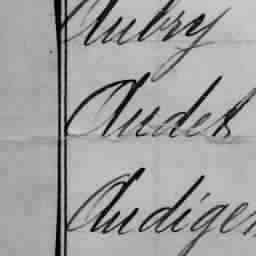 Aubry
Audet
Audiger